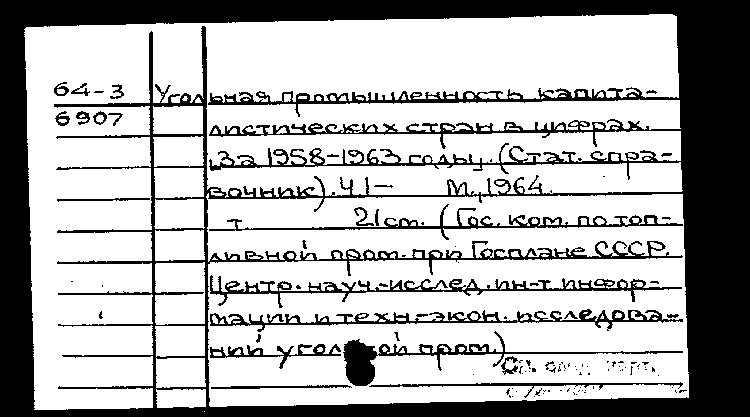 64-3 Угольная промышленность капита-
6907 листических стран в цифрах.
За 1958-1963 годы. (Стат. спра-
вочник). Ч.1- М., 1964.
т 21 cm. (Гос. ком. по топ-
ливной пром. при Госплане СССР.
Центр. науч.-исслед. ин-т инфор-
мации и техн.-экон. исследова-
ний угольной пром.)
См. след. карт.